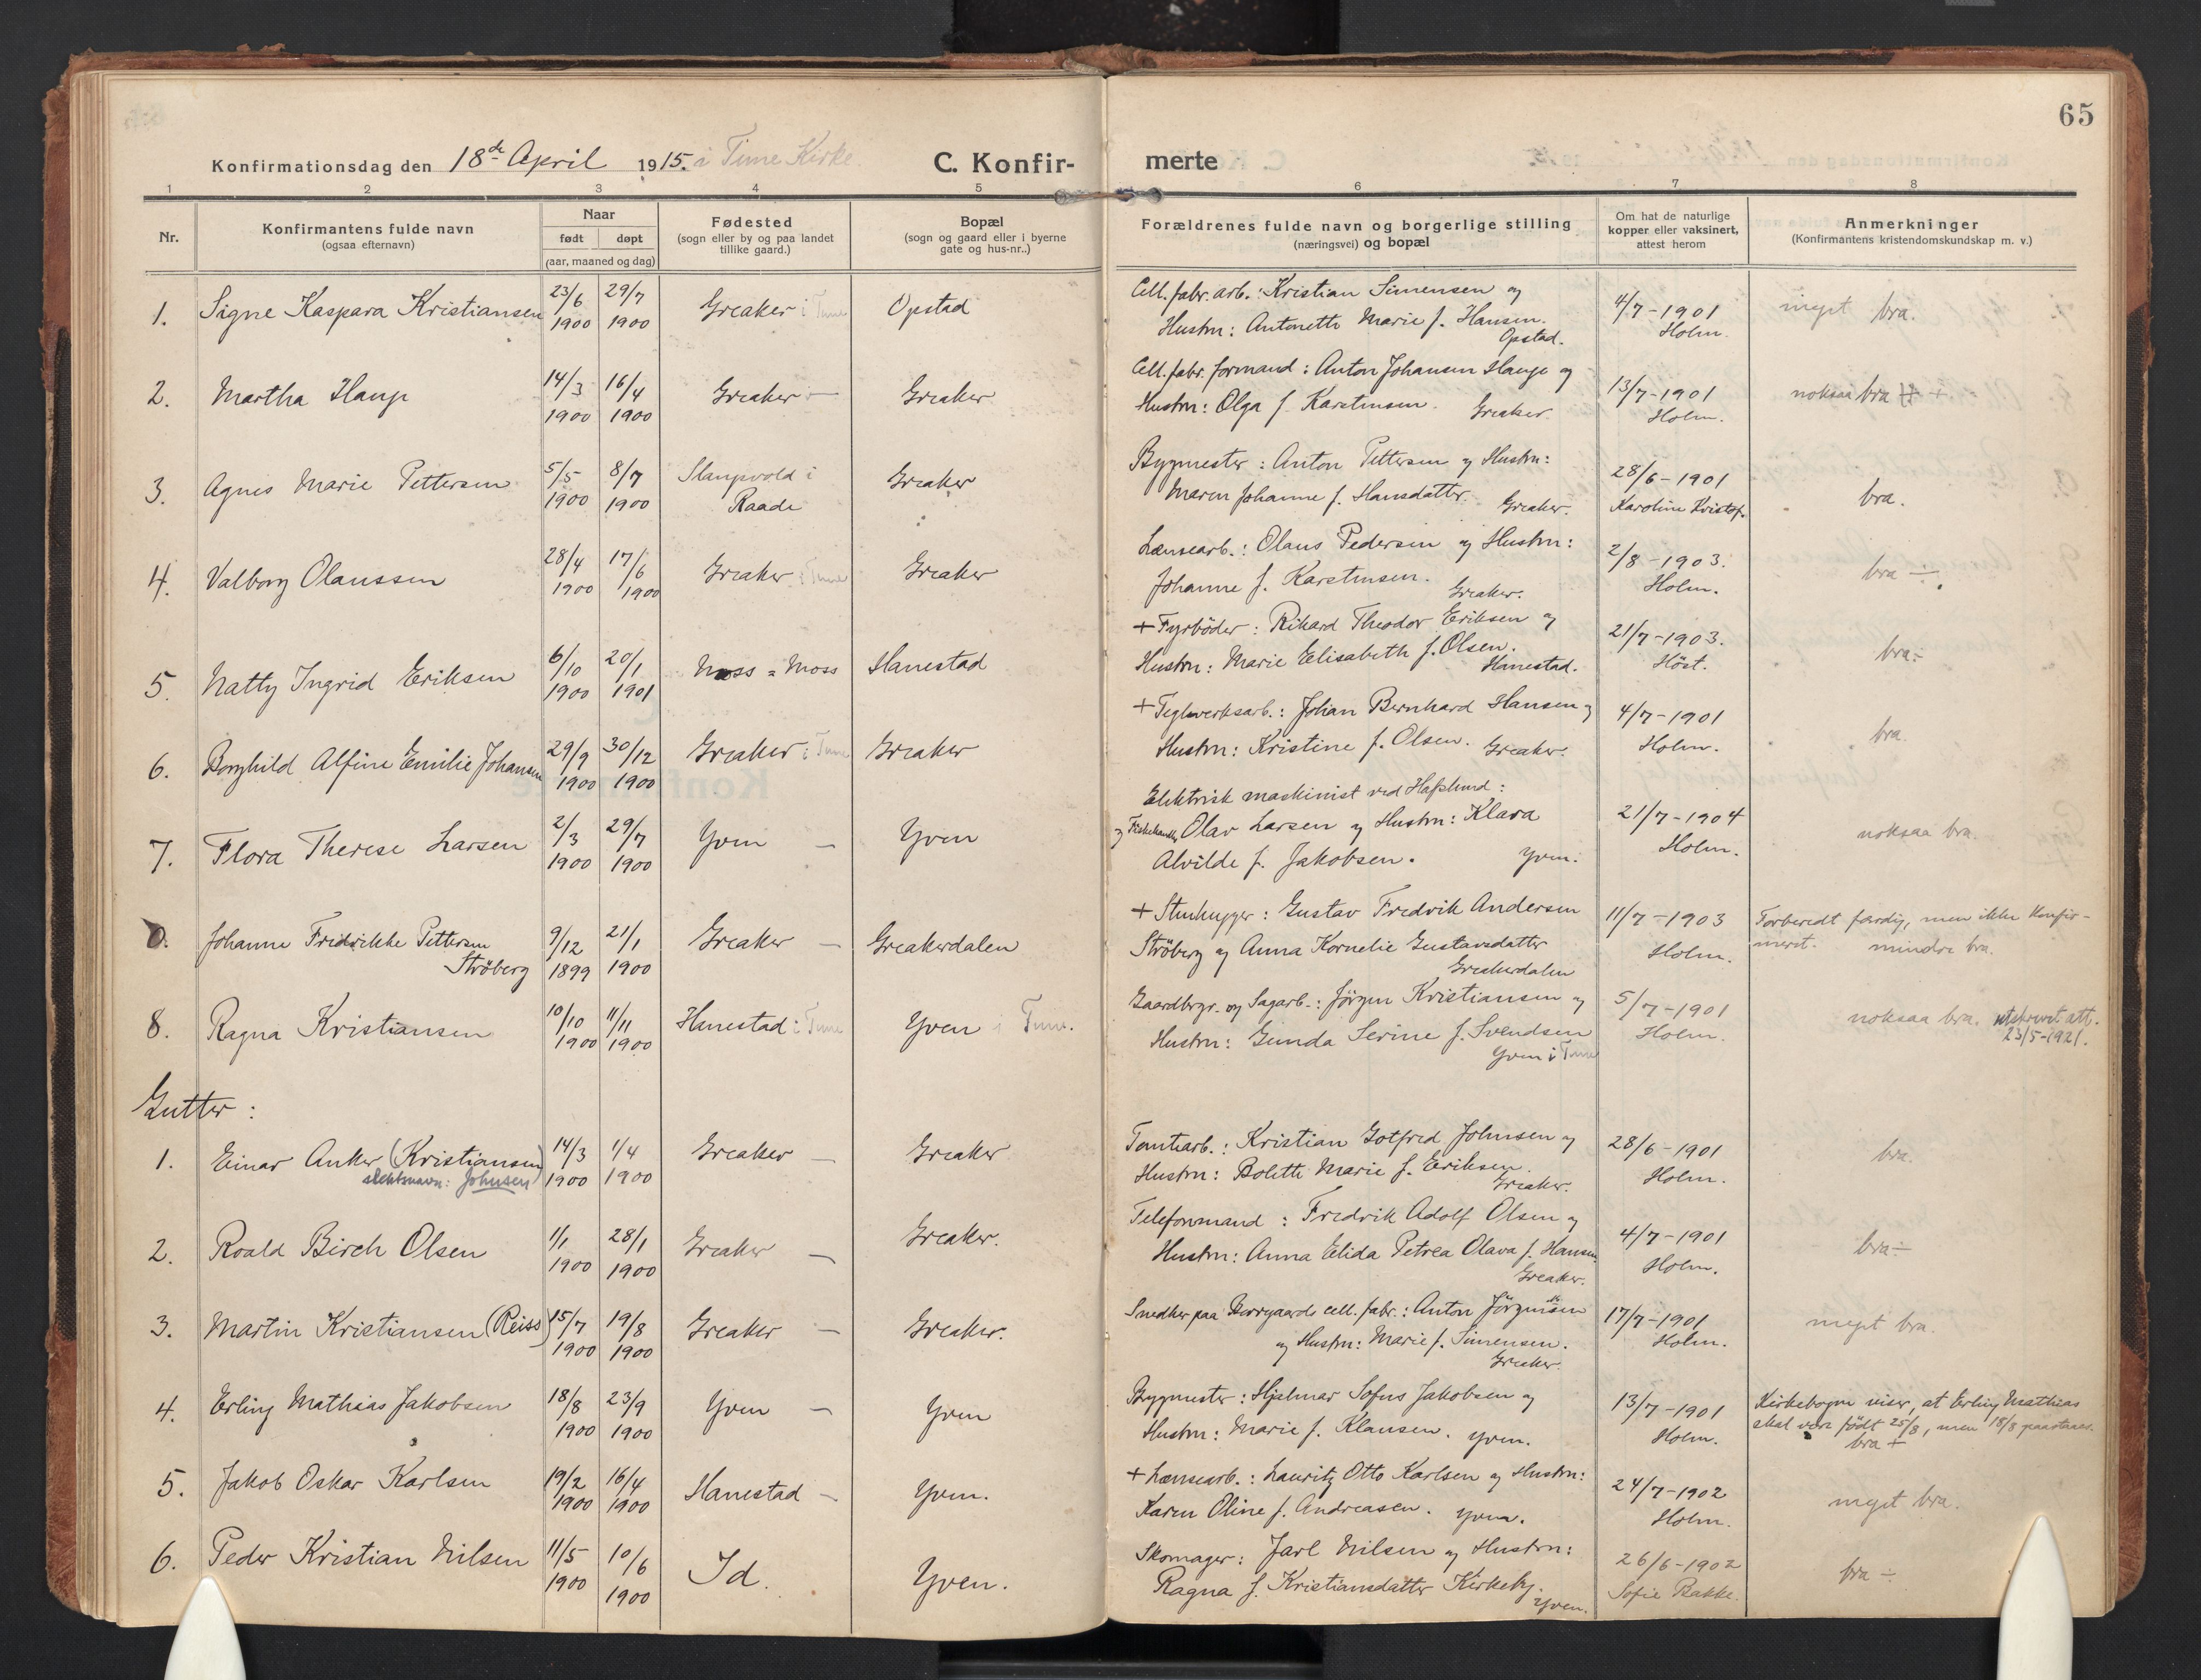 65
Konfirmationsdag den 18de April 1915. i Tune Kirke.
C. Konfir-
merte
1 2 3 4 5 6 7 8
Nr.
Konfirmantens fulde navn
(ogsaa efternavn)
Naar
født døpt
(aar, maaned og dag)
Fødested
(sogn eller by og paa landet
tillike gaard.)
Bopæl
(sogn og gaard eller i byerne
gate og hus-nr..)
Forældrenes fulde navn og borgerlige stilling
(næringsvei) og bopæl
Om hat de naturlige
kopper eller vaksinert,
attest herom
Anmerkninger
(Konfirmantens kristendomskundskap m. v.)
1. Signe Kaspara Kristiansen 23/6 1900 29/7 1900 Greaker i Tune Opstad
Cell. fabr. arb.: Kristian Simensen og
Hustru: Antonette Marie f. Hansen.
Opstad.
4/7-1901
Holm.
meget bra.
2. Martha Hauge 14/3 1900 16/4 1900 Greaker — Greaker
Cell. fabr. formand: Anton Johansen Hauge og
Hustru: Olga f. Karstensen. Greaker.
13/7-1901
Holm.
noksaa bra
3. Agnes Marie Pettersen 5/5 1900 8/7 1900 Slangsvold i
Raade
Greaker
Bygmester: Anton Pettersen og Hustru:
Maren Johanne f. Hansdatter. Greaker.
28/6-1901
Karoline Kristof.
bra.
4. Valborg Olaussen 28/4 1900 17/6 1900 Greaker i Tune Greaker
Lænsearb.: Olaus Pedersen og Hustru:
Johanne f. Karstensen. Greaker.
2/8-1903.
Holm.
bra ÷
5. Natty Ingrid Eriksen 6/10 1900 20/1 1901 Moss = Moss Hanestad
+ Fyrböder: Rikard Theodor Eriksen og
Hustru: Marie Elisabeth f. Olsen.
Hanestad.
21/7-1903.
Höst.
bra ÷
6. Borghild Alfine Emilie Johansen 29/9 1900 30/12 1900 Greaker i Tune Greaker
+ Teglverksarb.: Johan Bernhard Hansen og
Hustru: Kristine f. Olsen. Greaker.
4/7-1901
Holm.
bra.
7. Flora Therese Larsen 2/3 1900 29/7 1900 Yven — Yven
Elektrisk maskinist ved Hafslund:
og Fiskehandler Olav Larsen og Hustru: Klara
Alvilde f. Jakobsen. Yven.
21/7-1904
Holm.
noksaa bra.
0. Johanne Fredrikke Pettersen
Ströberg
9/12 1899 21/1 1900 Greaker — Greakerdalen
+ Stenhugger: Gustav Fredrik Andersen
Ströberg og Anna Kornelie Gustavsdatter
Greakerdalen
11/7-1903
Holm.
Forberedt færdig, men ikke konfir-
meret. mindre bra.
8. Ragna Kristiansen 10/10 1900 11/11 1900 Hanestad i Tune Yven i Tune.
Gaardbrgr. og Sagarb.: Jörgen Kristiansen og
Hustru: Gunda Serine f. Svendsen
Yven i Tune
5/7-1901
Holm.
noksaa bra. utskrevet att.
23/5-1921.
Gutter:
1. Einar Anker (Kristiansen)
slektsnavn: Johnsen
14/3 1900 1/4 1900 Greaker — Greaker
Tomtearb.: Kristian Gotfred Johnsen og
Hustru: Bolette Marie f. Eriksen.
Greaker.
28/6-1901
Holm.
bra.
2. Roald Birch Olsen 1/1 1900 28/1 1900 Greaker — Greaker.
Telefonmand: Fredrik Adolf Olsen og
Hustru: Anna Elida Petrea Olava f. Hansen
Greaker.
4/7-1901
Holm.
bra ÷
3. Martin Kristiansen (Reiss) 15/7 1900 19/8 1900 Greaker — Greaker.
Snedker paa Borregaards cell. fabr.: Anton Jörgensen
og Hustru: Marie f. Simensen.
Greaker.
17/7-1901
Holm.
meget bra.
4. Erling Mathias Jakobsen 18/8 1900 23/9 1900 Yven — Yven
Bygmester: Hjalmar Sofus Jakobsen og
Hustru: Marie f. Klausen. Yven.
13/7-1901
Holm.
Kirkebogen viser, at Erling Mathias
skal være födt 25/8, men 18/8 paastaaes.
bra +
5. Jakob Oskar Karlsen 19/2 1900 16/4 1900 Hanestad — Yven.
+ Lænsearb.: Lauritz Otto Karlsen og Hustru:
Karen Oline f. Andreasen. Yven.
24/7-1902
Holm.
meget bra.
6. Peder Kristian Nilsen 11/5 1900 10/6 1900 Id. Yven.
Skomager: Jarl Nilsen og Hustru:
Ragna f. Kristiansdatter Kirkeby.
Yven.
26/6-1902
Sofie Bakke.
bra ÷